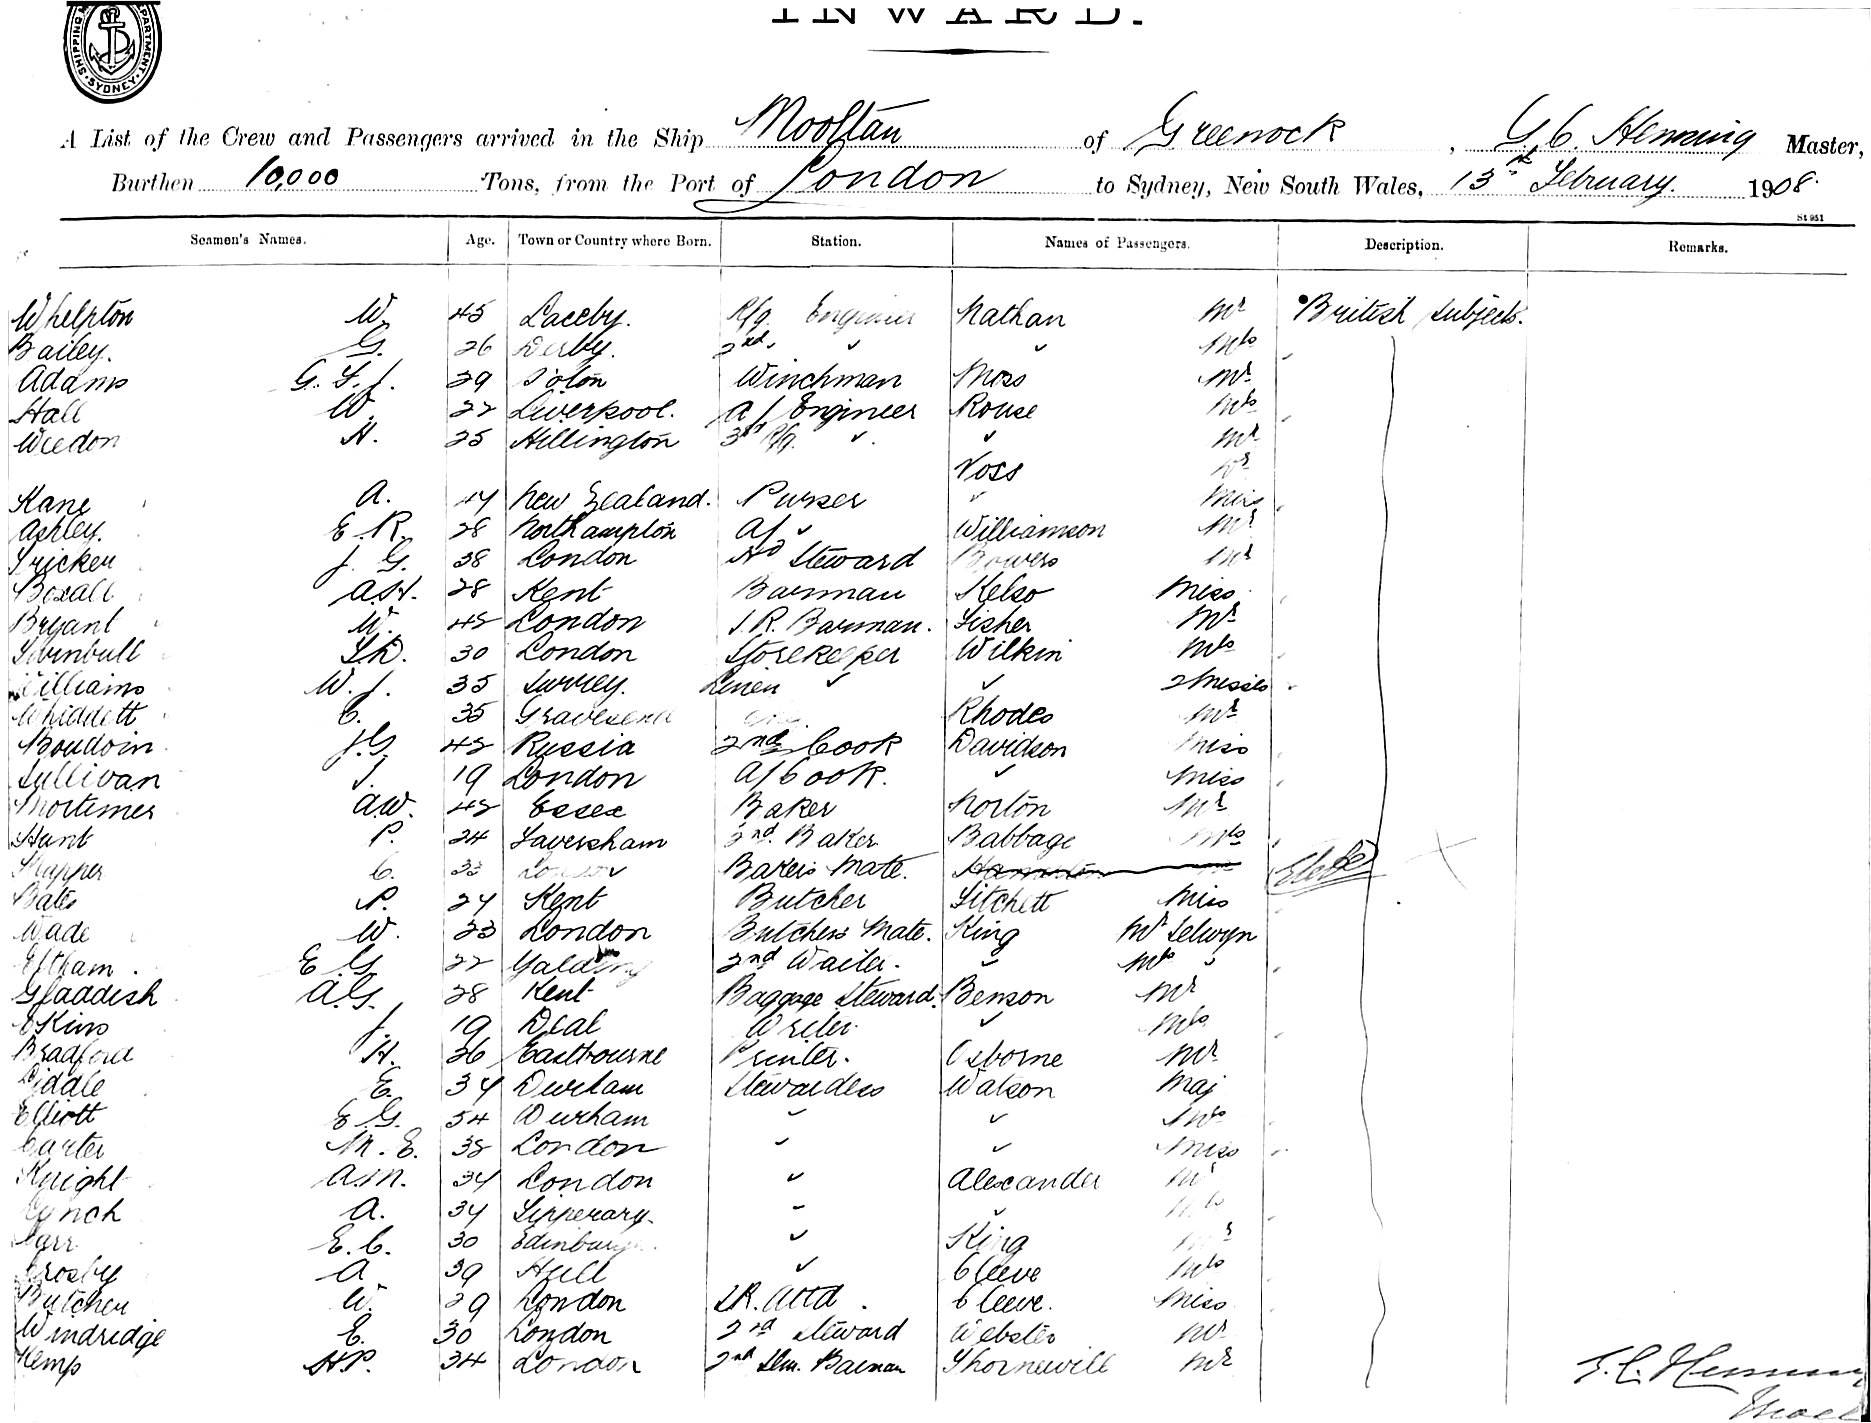 INWARD.
SHIPPING DEPARTMENT. SYDNEY
A List of the Crew and Passengers arrived in the Ship Mooltan of Greenock, G. C. Henning Master,
Burthen 10,000 Tons, from the Port of London to Sydney, New South Wales, 13th February. 1908.
St 951
Seamen's Names. Age. Town or Country where Born. Station. Names of Passengers. Description. Remarks.
Whelpton W. 45 Laceby. Rfg. Engineer Nathan Mr British Subjects.
Bailey. G. 26 Derby. 2nd. " " Mrs
Adams G. F. J. 29 S'oton Winchman Moss Mr
Hall W. 22 Liverpool. a/ Engineer Rouse Mrs
Weedon H. 25 Hillington 3rd Rfg. " " Mr
Voss Dr
Kane A. 44 New Zealand. Purser " Miss
Ashley. E. R. 28 Northampton A/ " Williamson Mr
Tricker J. G. 38 London Hd Steward Bowers Mr
Boxall A.H. 28 Kent Barman Kelso Miss
Bryant W. 42 London S.R. Barman. Fisher Mr
Turnbull 30 London Storekeeper Wilkin Mrs
Williams W. J. 35 Surrey. Linen " " 2 Misses
Whiddett C. 35 Gravesend Rhodes Mr
Boudoin J.G. 42 Russia 2nd Cook Davidson Miss
Sullivan 19 London A/Cook. " Miss
Mortimer A.W. 42 Essex Baker Norton Mr
Hunt P. 24 Faversham 2nd. Baker Babbage Mrs
C. 33 London Bakers Mate. Hamilton
Bates P. 24 Kent Butcher Fitchett Miss
Wade W. 23 London Butchers Mate. King Mr Selwyn
Eltham. E. G. 22 Yalding 2nd Waiter. " Mrs "
Gladdish A.G. 28 Kent Baggage Steward. Benson Mr
Ekins J. 19 Deal Writer " Mrs
Bradford H. 26 Eastbourne Printer. Osborne Mr
Liddle E. 34 Durham Stewardess Watson Maj
Elliott E G. 54 Durham " " Mrs
Carter M. E. 38 London " " Miss
Knight A.M. 34 London " Alexander Mr
Lynch A. 34 Tipperary. " " Mrs
Carr E. C. 30 Edinburgh " King Mr
Crosby A 39 Hull " Cleeve Mrs
Butcher W. 29 London S.R. Attd. Cleeve. Miss
Windridge E. 30 London 2nd Steward Webster Mr
Kemp H.P. 34 London 2nd Slm. Barman Thornewill Mr
G. C. Henning